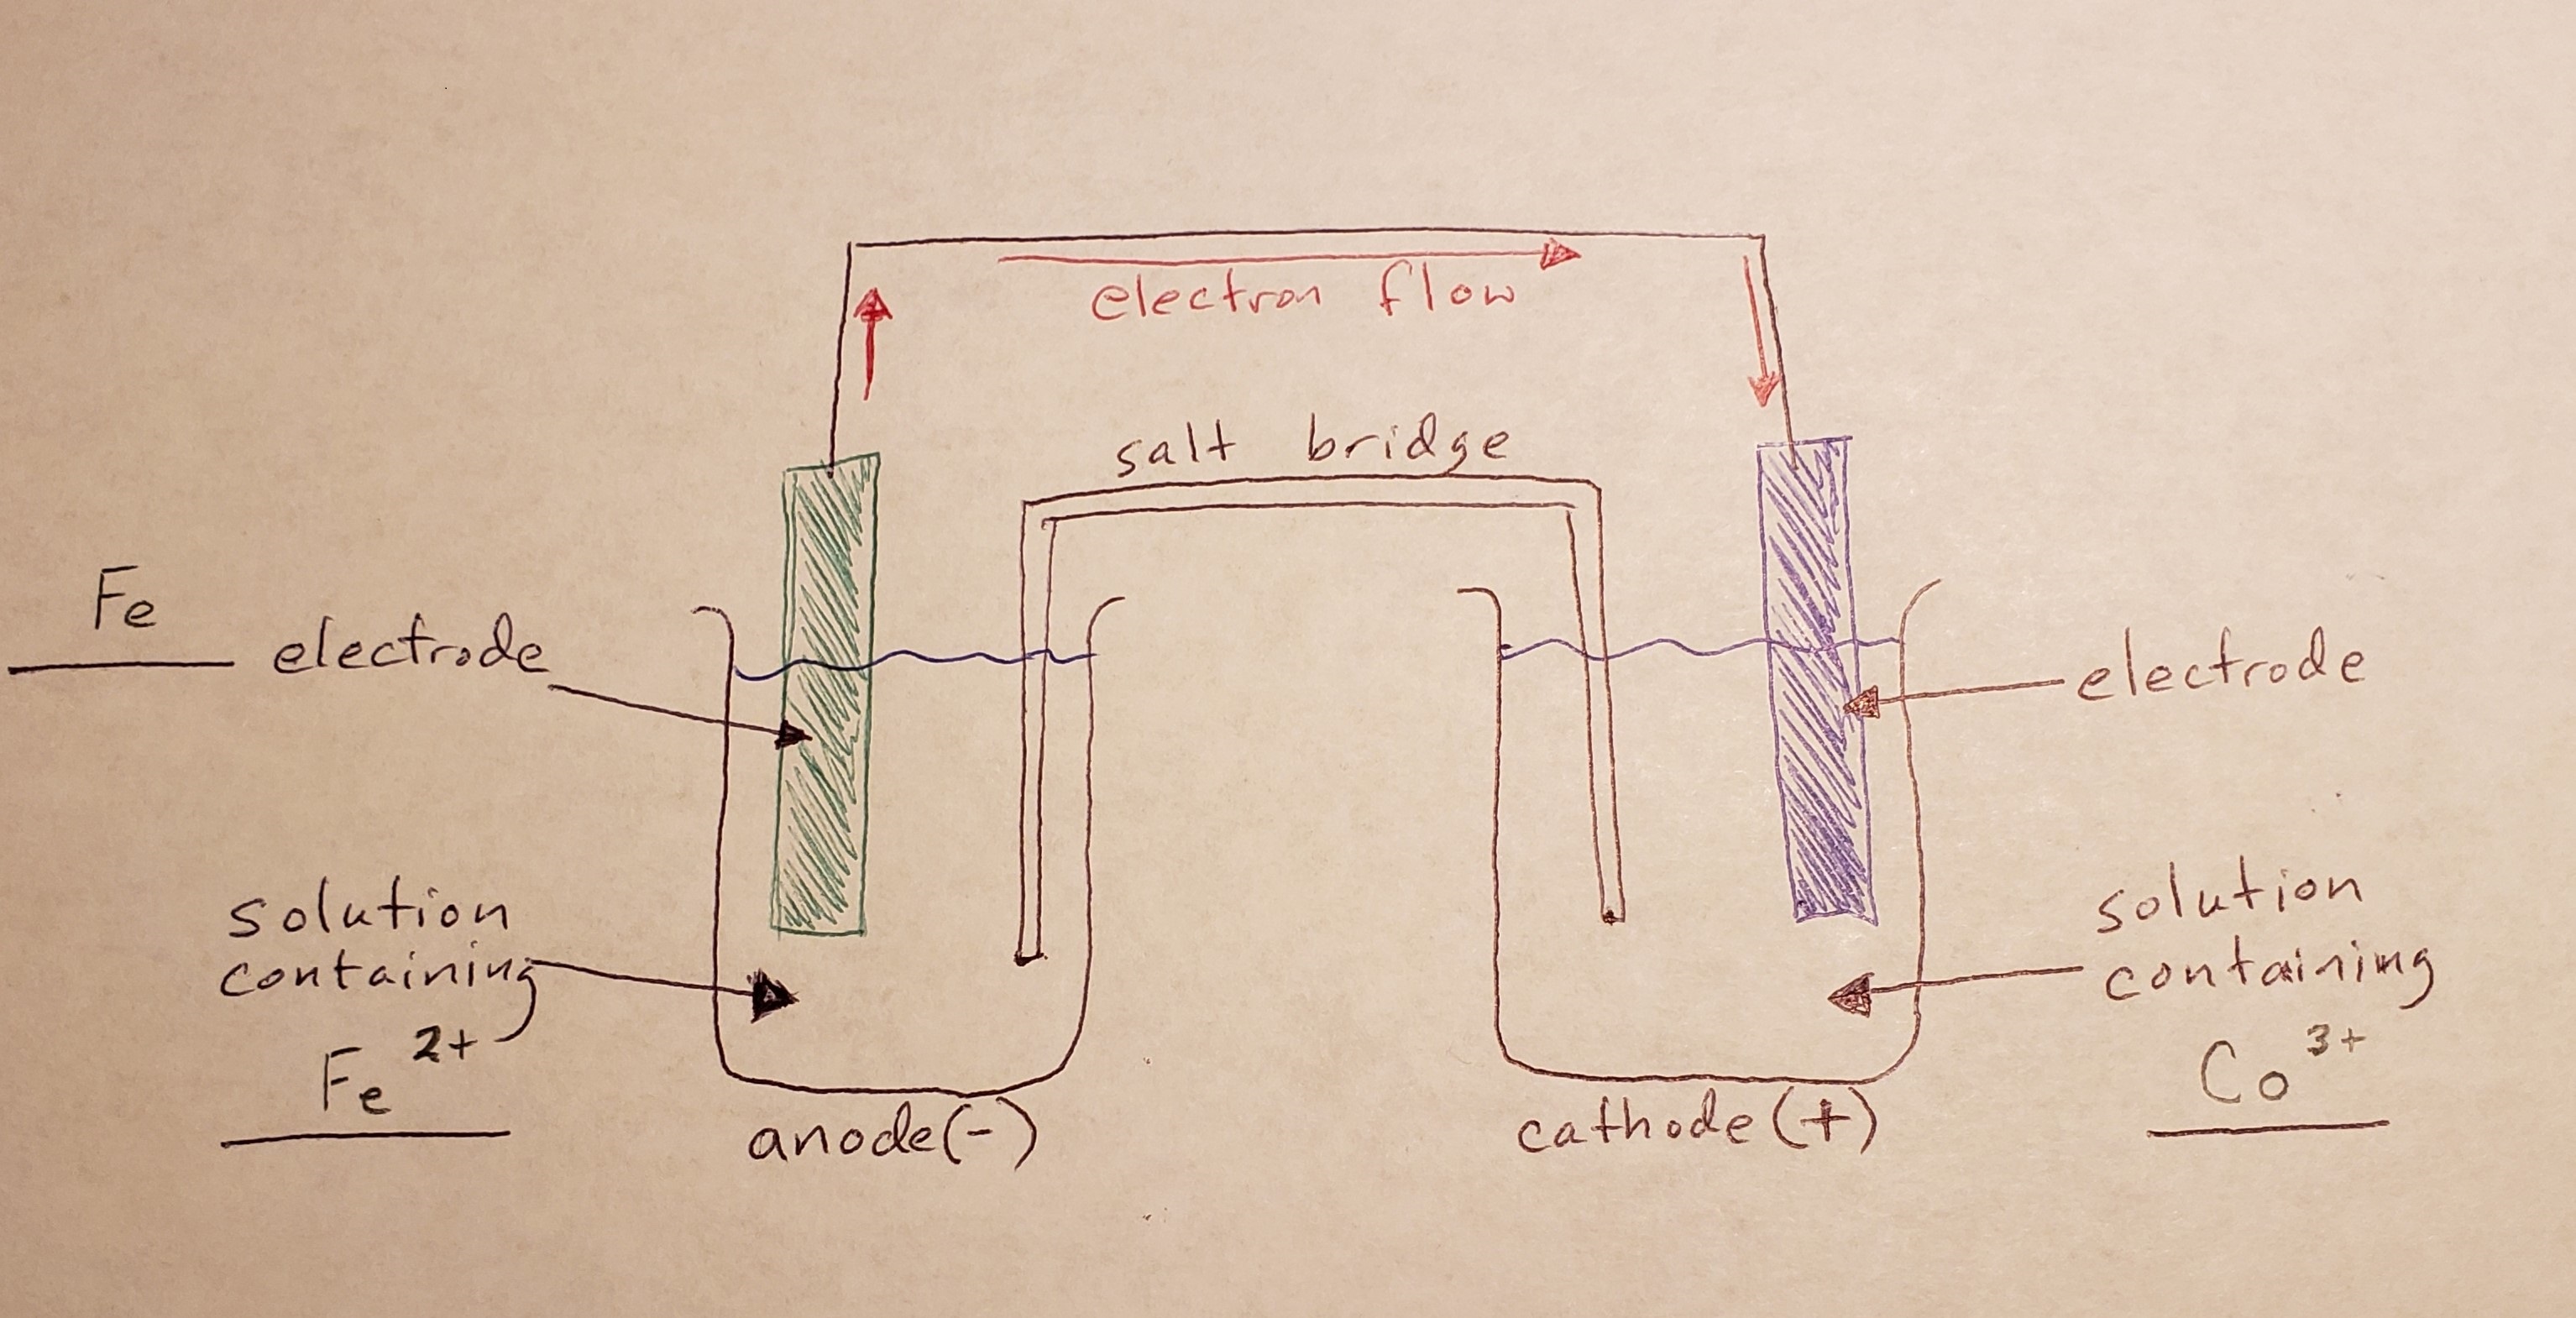 electron flow
salt bridge
Fe
electrode
electrode
solution
containing
Fe 2+
solution
containing
Co 3+
anode (-)
cathode (+)